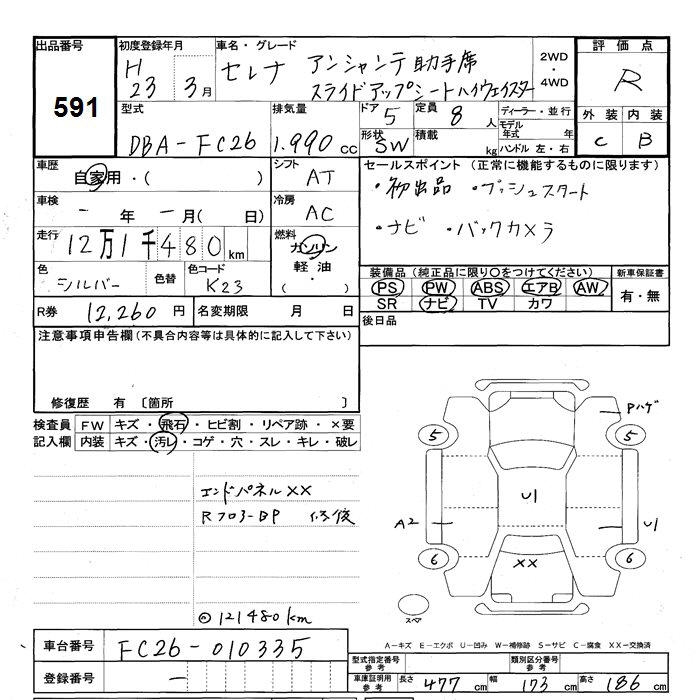 出品番号
591
初度登録年月
H 23 3月
車名・グレード
セレナ アンシャンテ助手席
スライドアップシートハイウェイスター
2WD
・
4WD
評価点
R
外装 内装
C B
型式
DBA-FC26
排気量
1.990cc
ドア
5
定員
8人
形状
SW
積載
kg
ディーラー・並行
モデル年式 年
ハンドル 左・右
車歴
自家用・( )
シフト
AT
車検
-年-月(日)
冷房
AC
走行
12万1千480km
燃料
ガソリン
軽油
( ・ )
色
シルバー
色替
色コード
K23
R券 12,260円
名変期限 月 日
セールスポイント (正常に機能するものに限ります)
・初出品 ・プッシュスタート
・ナビ ・バックカメラ
装備品 (純正品に限り○をつけてください)
PS PW ABS エアB AW
SR ナビ TV カワ
新車保証書
有・無
後日品
注意事項申告欄(不具合内容等は具体的に記入して下さい)
修復歴 有 〔箇所 〕
検査員
記入欄
FW キズ・飛石・ヒビ割・リペア跡・×要
内装 キズ・汚レ・コゲ・穴・スレ・キレ・破レ
エンドパネルXX
RフロアーBP 修復
◎121480km
Pハゲ
5 5
U1
A2
U1
6 6
XX
スペア
A-キズ E-エクボ U-凹み W-補修跡 S-サビ C-腐食 XX-交換済
車台番号 FC26-010335
登録番号 -
型式指定番号
参考
類別区分番号
参考
車庫証明用
参考
長さ 477cm 幅 173cm 高さ 186cm